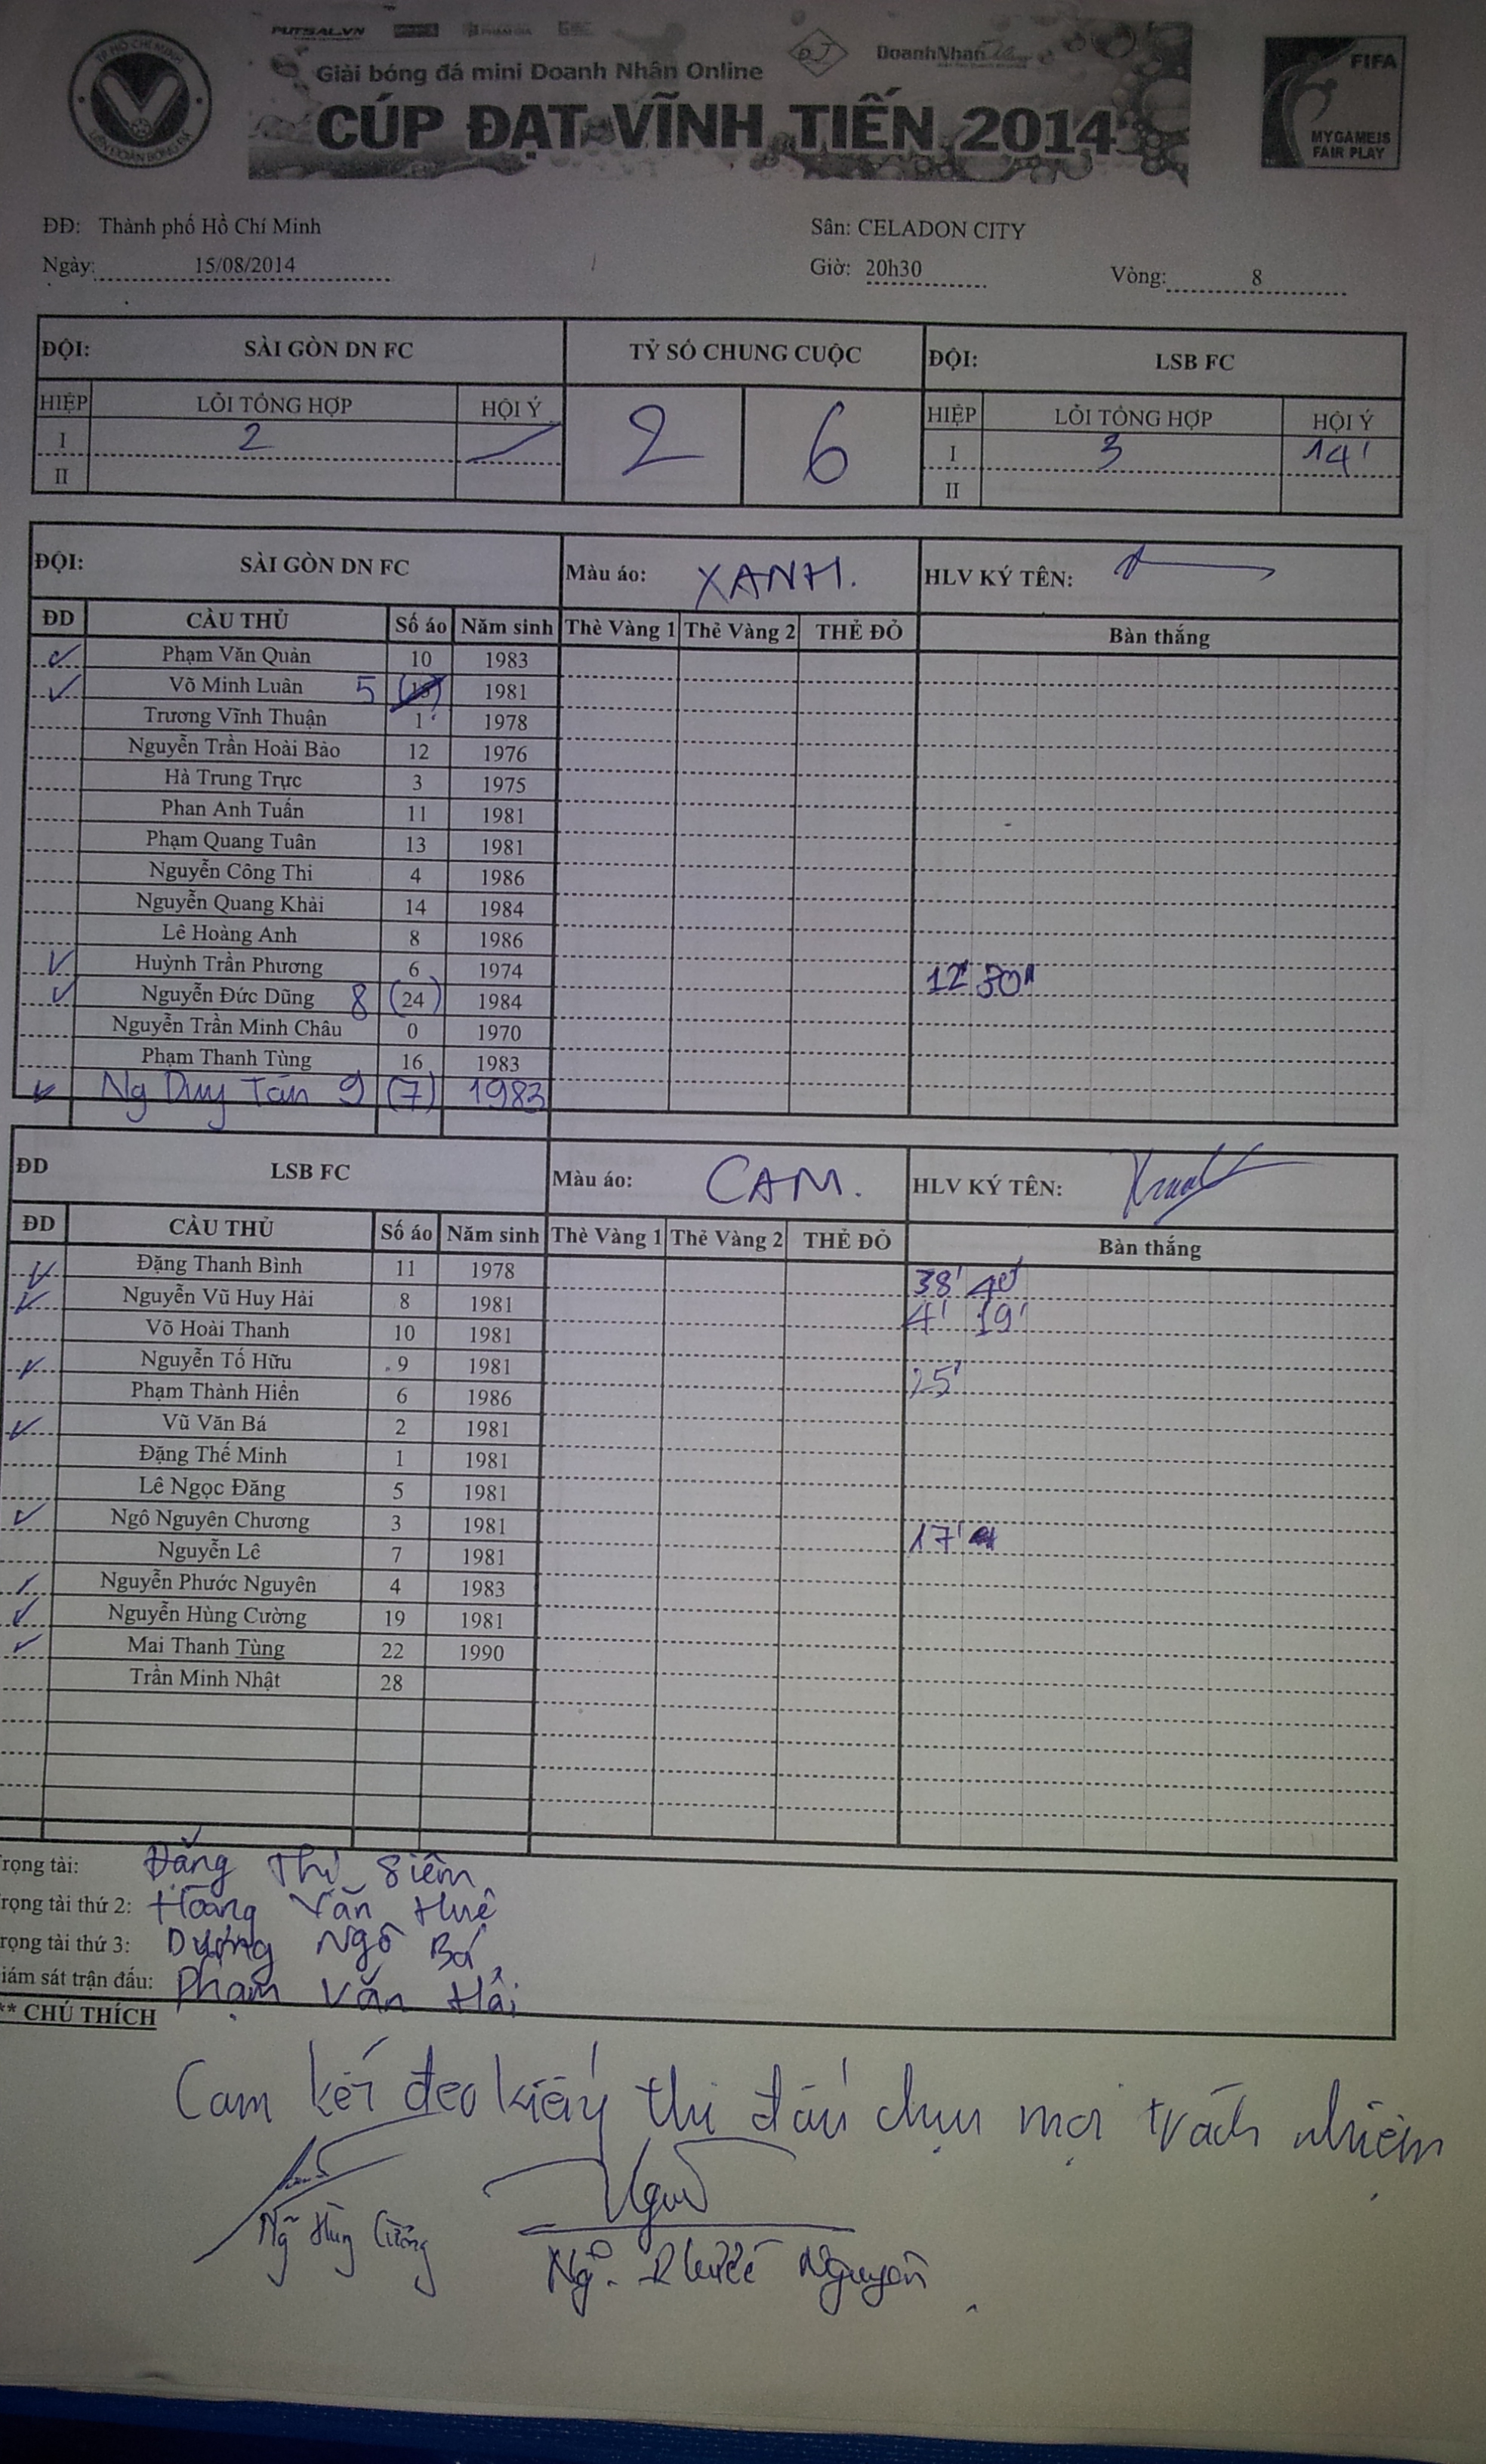 TP HỒ CHÍ MINH
LIÊN ĐOÀN BÓNG ĐÁ
FUTSAL.VN
DoanhNhân
Giải bóng đá mini Doanh Nhân Online
CÚP ĐẠT VĨNH TIẾN 2014
FIFA
MY GAME IS
FAIR PLAY
ĐĐ: Thành phố Hồ Chí Minh Sân: CELADON CITY
Ngày: 15/08/2014 Giờ: 20h30 Vòng: 8
ĐỘI: SÀI GÒN DN FC TỶ SỐ CHUNG CUỘC ĐỘI: LSB FC
HIỆP LỖI TỔNG HỢP HỘI Ý 2 6 HIỆP LỖI TỔNG HỢP HỘI Ý
I 2 I 3 14'
II II
ĐỘI: SÀI GÒN DN FC Màu áo: XANH. HLV KÝ TÊN:
ĐD CẦU THỦ Số áo Năm sinh Thẻ Vàng 1 Thẻ Vàng 2 THẺ ĐỎ Bàn thắng
Phạm Văn Quản 10 1983
Võ Minh Luân 5 1981
Trương Vĩnh Thuận 1 1978
Nguyễn Trần Hoài Bảo 12 1976
Hà Trung Trực 3 1975
Phan Anh Tuấn 11 1981
Phạm Quang Tuân 13 1981
Nguyễn Công Thi 4 1986
Nguyễn Quang Khải 14 1984
Lê Hoàng Anh 8 1986
Huỳnh Trần Phương 6 1974 12' 30"
Nguyễn Đức Dũng 8 (24) 1984
Nguyễn Trần Minh Châu 0 1970
Phạm Thanh Tùng 16 1983
Ng Duy Tân 9 (7) 1983
ĐD LSB FC Màu áo: CAM. HLV KÝ TÊN:
ĐD CẦU THỦ Số áo Năm sinh Thẻ Vàng 1 Thẻ Vàng 2 THẺ ĐỎ Bàn thắng
Đặng Thanh Bình 11 1978 38' 40'
Nguyễn Vũ Huy Hải 8 1981 4' 19'
Võ Hoài Thanh 10 1981
Nguyễn Tố Hữu 9 1981 25'
Phạm Thành Hiển 6 1986
Vũ Văn Bá 2 1981
Đặng Thế Minh 1 1981
Lê Ngọc Đăng 5 1981
Ngô Nguyên Chương 3 1981 17'
Nguyễn Lê 7 1981
Nguyễn Phước Nguyên 4 1983
Nguyễn Hùng Cường 19 1981
Mai Thanh Tùng 22 1990
Trần Minh Nhật 28
rọng tài: Đặng Thị Siêm
rọng tài thứ 2: Hoàng Văn Huệ
rọng tài thứ 3: Dương Ngô Bá
iám sát trận đấu: Phạm Văn Hải
** CHÚ THÍCH
Cam kết đeo kiếng thi đấu chịu mọi trách nhiệm
Ng Hùng Cường Ng. Phước Nguyên